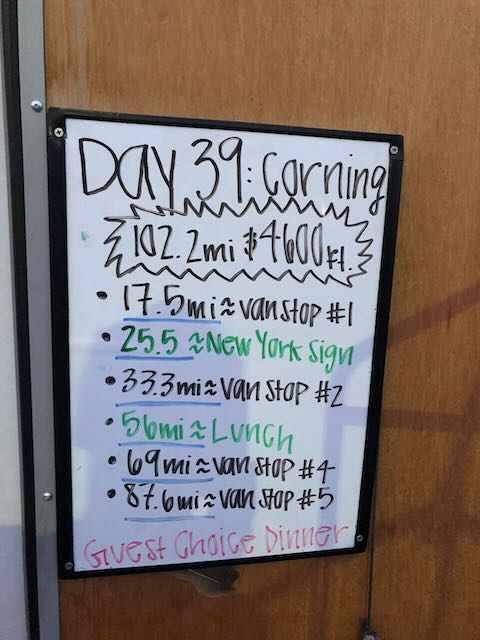 Day 39: Corning
102.2mi & 4600ft.
• 17.5mi ≈ van stop #1
• 25.5 ≈ New York Sign
• 33.3mi ≈ van stop #2
• 56mi ≈ Lunch
• 69mi ≈ van stop #4
• 87.6mi ≈ van stop #5
Guest Choice Dinner